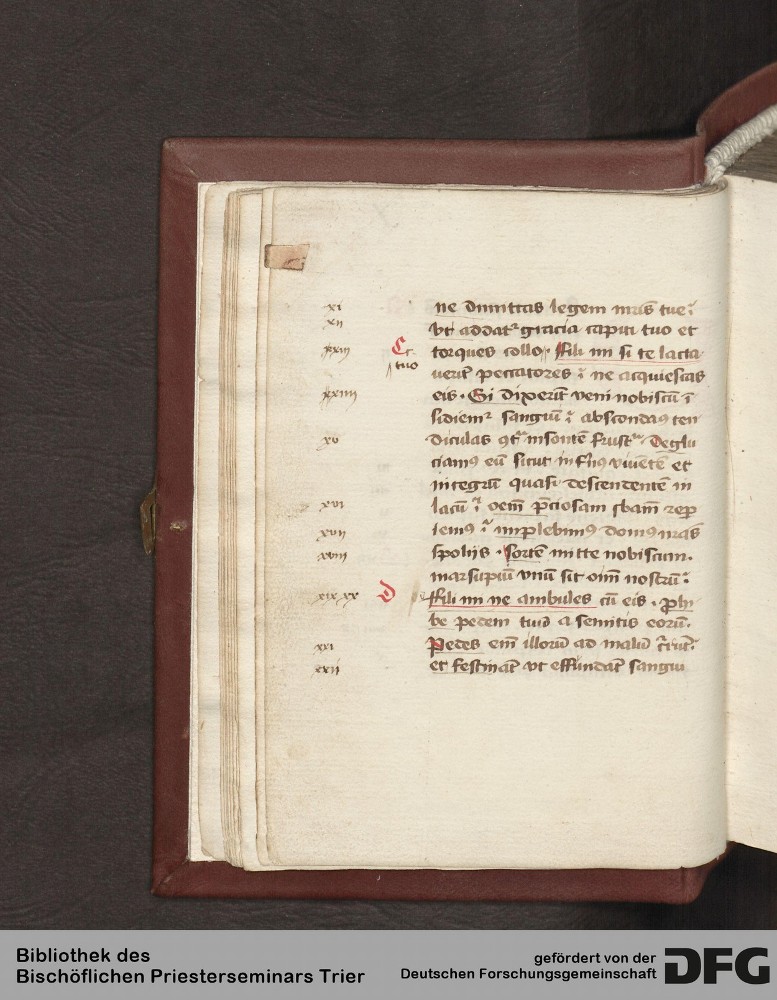 xi
xii
xxiii
xxiiii
xv
xvi
xvii
xviii
xix xx
xxi
xxii
C
tuo
D
ne dimittas legem mrīs tue
vt addatr gracia capiti tuo et
torques collo fili mi si te lacta
uerīt peccatores ne acquiescas
eis. Si dixerīt veni nobiscū ī
sidiemr sanguī abscondaꝰ ten
diculas insontē frustra Deglu
ciamꝰ eū sicut infernꝰ viuētē et
integrū quasi descendentē in
lacū oem p̄ciosam sbam̄ rep
iemꝰ implebimꝰ domꝰ nras̄
spolijs. sortē mitte nobiscum.
marsupiū vnū sit om̄ nostrū
ffili mi ne ambules cū eis. phi
be pedem tuū a semitis eorū.
Pedes em̄ illorū ad malū
et festināt vt effundāt sangui
Bibliothek des
Bischöflichen Priesterseminars Trier
gefördert von der
Deutschen Forschungsgemeinschaft
DFG